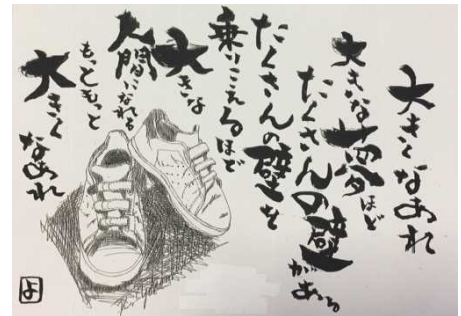 大きくなあれ
大きな夢ほど
たくさんの壁がある
たくさんの壁を
乗りこえるほど
大きな
人間になれる
もっともっと
大きくなあれ
よ